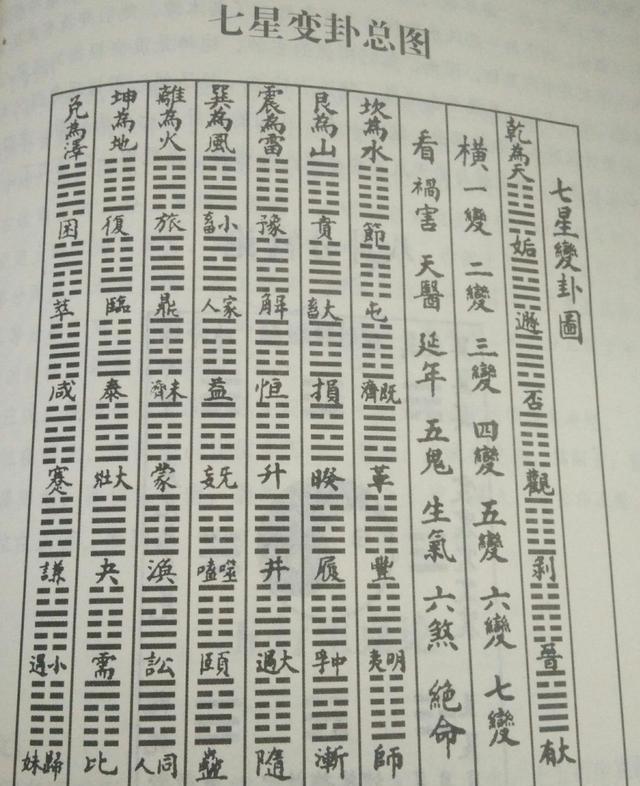 七星变卦总图
七星變卦圖
乾為天 姤 遯 否 觀 剥 晉 大有
橫一變 二變 三變 四變 五變 六變 七變
看禍害 天醫 延年 五鬼 生氣 六煞 絕命
坎為水 節 屯 既濟 革 豐 明夷 師
艮為山 賁 大畜 損 睽 履 中孚 漸
震為雷 豫 解 恒 升 井 大過 隨
巽為風 小畜 家人 益 无妄 噬嗑 頤 蠱
離為火 旅 鼎 未濟 蒙 渙 訟 同人
坤為地 復 臨 泰 大壯 夬 需 比
兑為澤 困 萃 咸 蹇 謙 小過 歸妹